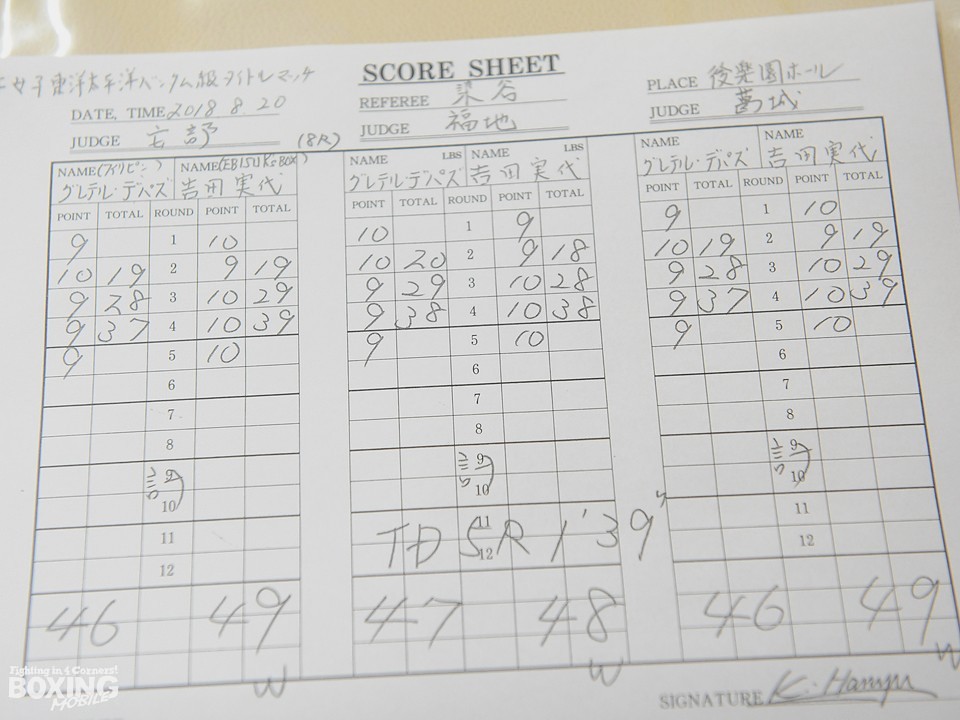 女子東洋太平洋バンタム級タイトルマッチ
SCORE SHEET
DATE, TIME 2018 8. 20
REFEREE 染谷
PLACE 後楽園ホール
JUDGE (8R)
JUDGE 福地
JUDGE 葛城
NAME (フィリピン) NAME (EBISU K's BOX) NAME LBS NAME LBS NAME NAME
グレテル・デパズ 吉田実代 グレテル・デパズ 吉田実代 グレテル・デパズ 吉田実代
POINT TOTAL ROUND POINT TOTAL POINT TOTAL ROUND POINT TOTAL POINT TOTAL ROUND POINT TOTAL
9 1 10 10 1 9 9 1 10
10 19 2 9 19 10 20 2 9 18 10 19 2 9 19
9 28 3 10 29 9 29 3 10 28 9 28 3 10 29
9 37 4 10 39 9 38 4 10 38 9 37 4 10 39
9 5 10 9 5 10 9 5 10
6 6 6
7 7 7
8 8 8
9 9 9
10 10 10
11 11 11
12 12 12
TD 5R 1'39"
46 49 47 48 46 49
W W W
SIGNATURE
Fighting in 4 Corners!
BOXING
MOBILE